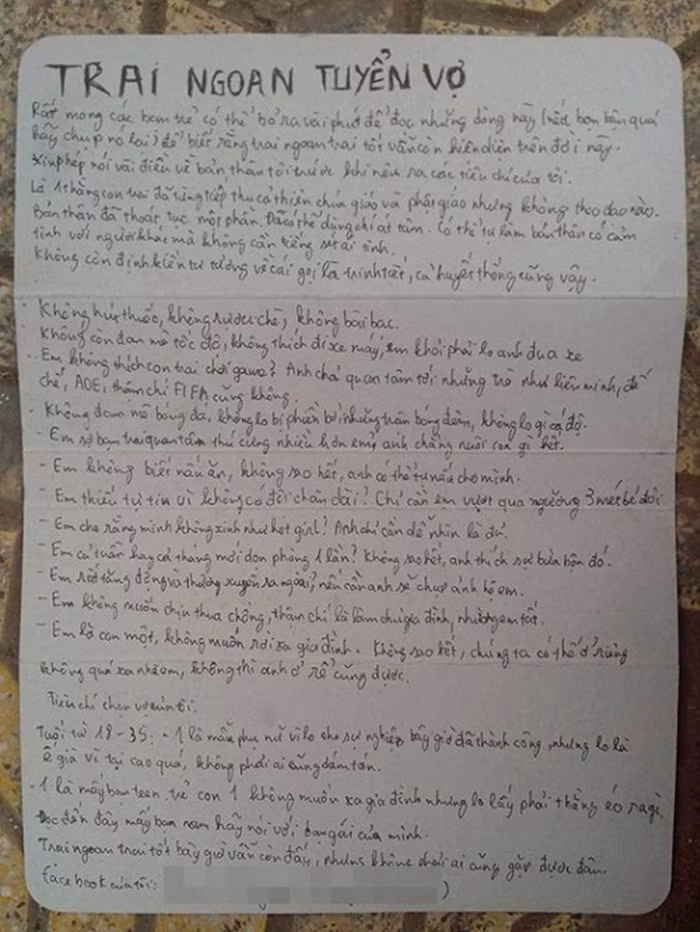 TRAI NGOAN TUYỂN VỢ
Rất mong các bạn trẻ có thể bỏ ra vài phút để đọc những dòng này (nếu bạn bận quá
hãy chụp nó lại) để biết rằng trai ngoan trai tốt vẫn còn hiện diện trên đời này.
Xin phép nói vài điều về bản thân tôi trước khi nêu ra các tiêu chí của tôi.
Là 1 thằng con trai đã từng tiếp thu cả thiên chúa giáo và phật giáo nhưng không theo đạo nào.
Bản thân đã thoát tục một phần. Đã có thể dụng chí át tâm. Có thể tự làm bản thân có cảm
tình với người khác mà không cần tiếng sét ái tình.
Không còn định kiến tư tưởng về cái gọi là trinh tiết, cả huyết thống cũng vậy.
- Không hút thuốc, không rượu chè, không bài bạc.
- Không còn đam mê tốc độ, không thích đi xe máy, em khỏi phải lo anh đua xe
- Em không thích con trai chơi game? Anh chả quan tâm tới những trò như liên minh, đế
chế, AOE, thậm chí FIFA cũng không.
- Không đam mê bóng đá, không lo bị phiền bởi những trận bóng đêm, không lo gì cá độ.
- Em sợ bạn trai quan tâm thú cưng nhiều hơn em? anh chẳng nuôi con gì hết.
- Em không biết nấu ăn, không sao hết, anh có thể tự nấu cho mình.
- Em thiếu tự tin vì không có đôi chân dài? Chỉ cần em vượt qua ngưỡng 3 mét bẻ đôi
- Em cho rằng mình không xinh như hot girl? Anh chỉ cần dễ nhìn là đủ.
- Em cả tuần hay cả tháng mới dọn phòng 1 lần? Không sao hết, anh thích sự bừa bộn đó.
- Em rất tăng động và thường xuyên ra ngoài, nếu cần anh sẽ chụp ảnh hộ em.
- Em không muốn chịu thua chồng, thậm chí là làm chủ gia đình, nhường em tất.
- Em là con một, không muốn rời xa gia đình. Không sao hết, chúng ta có thể ở riêng
không quá xa nhà em, không thì anh ở rể cũng được.
Tiêu chí chọn vợ của tôi.
Tuổi từ 18-35: - 1 là mẫu phụ nữ vì lo cho sự nghiệp, bây giờ đã thành công, nhưng lo là
ế già vì tại cao quá, không phải ai cũng dám tán.
- 1 là mấy bạn teen, trẻ con 1 không muốn xa gia đình nhưng lo lấy phải thằng éo ra gì.
Đọc đến đây mấy bạn nam hãy nói với bạn gái của mình.
Trai ngoan trai tốt bây giờ vẫn còn đấy, nhưng không phải ai cũng gặp được đâu.
Facebook của tôi: )